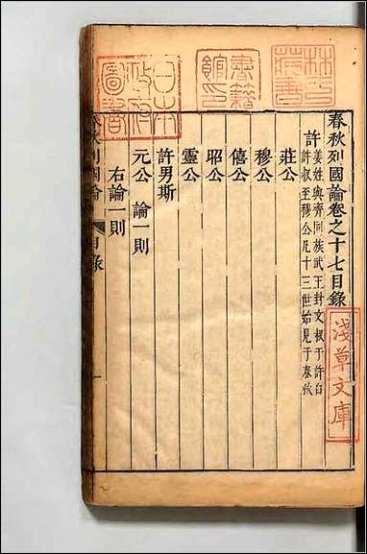 春秋列國論卷之十七目錄
許
姜姓與齊同族武王封文叔于許自
許叔至穆公凡十三世始見于春秋
莊公
穆公
僖公
昭公
靈公
許男斯
元公 論一則
右論一則
春秋列國論
目錄
一
林氏藏書
書籍館印
日本政府圖書
淺草文庫